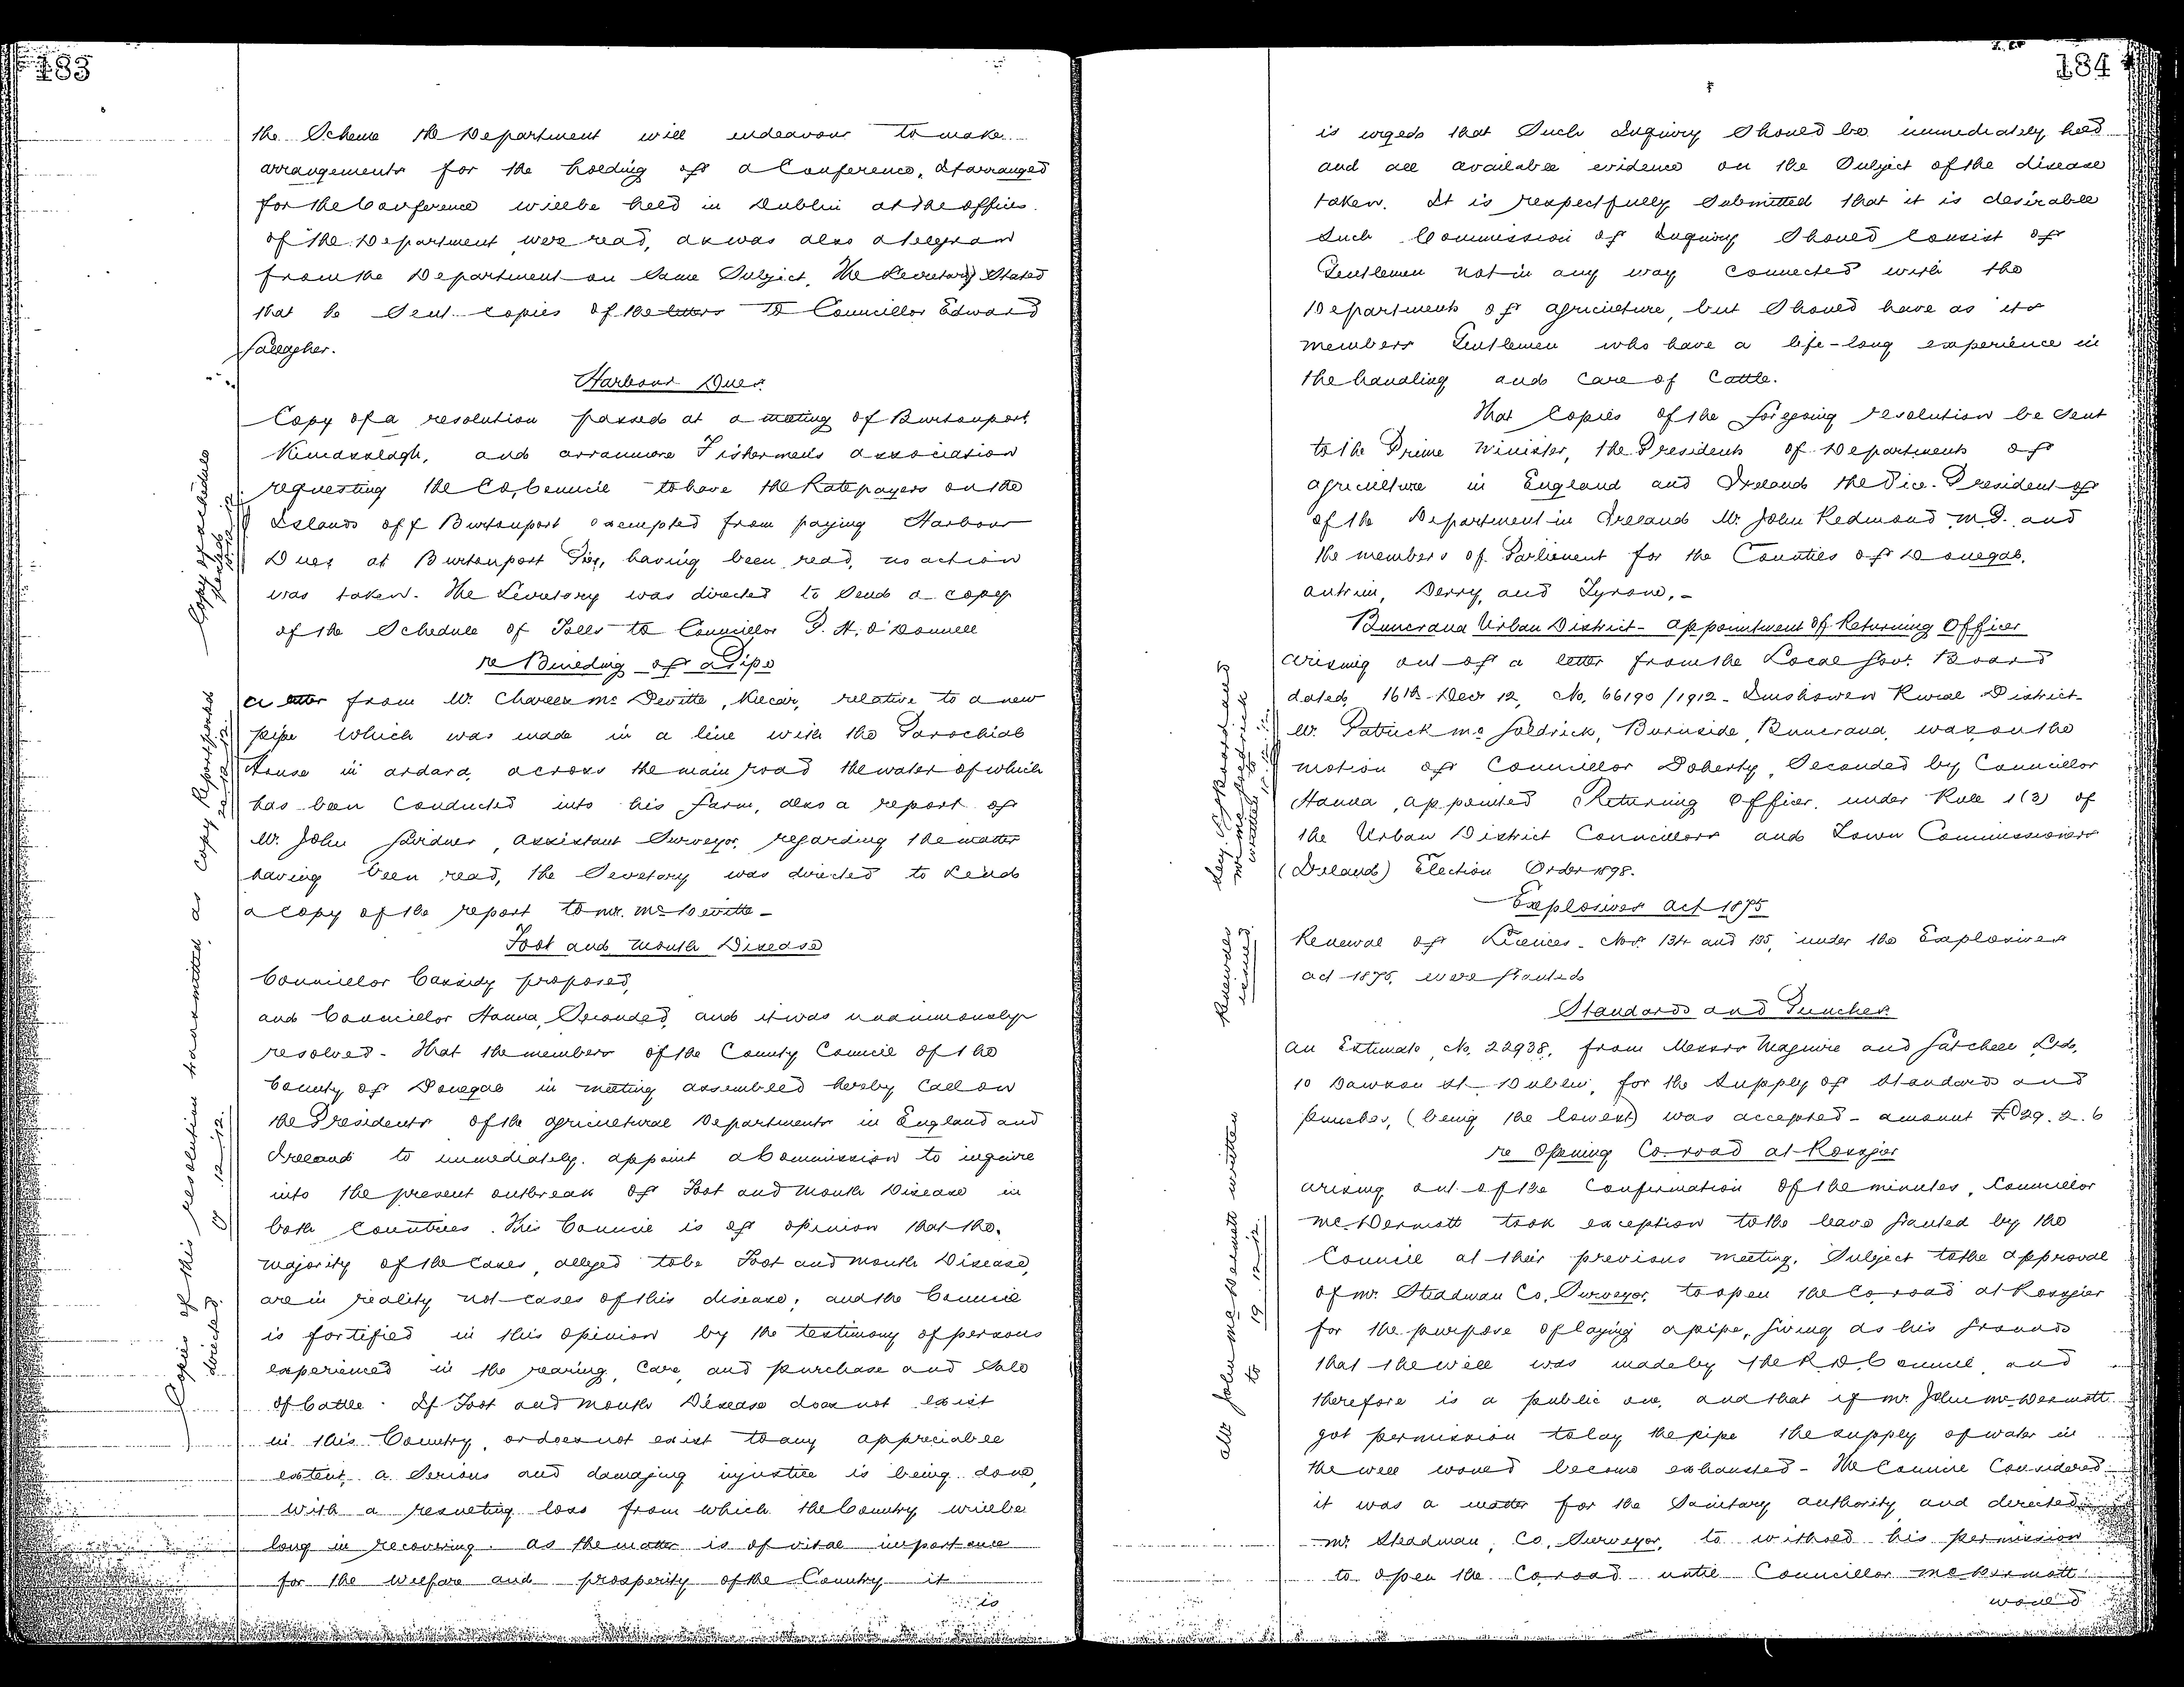 183
the Scheme the Department will endeavour to make
arrangements for the holding of a Conference, If arranged
for the Conference will be held in Dublin at the offices
of the Department were read, as was also a telegram
from the Department on same Subject. The Secretary Stated
that he Sent copies of the letters to Councillor Edward
Gallagher.
Harbour Dues.
Copy of a resolution passed at a meeting of Burtonport
Kincasslagh, and arranmore Fishermens association
requesting the Co. Council to have the Ratepayers on the
Islands off Burtonport exempted from paying Harbour
Dues at Burtonport Pier, having been read, no action
was taken. The Secretary was directed to Send a copy
of the Schedule of Tolls to Councillor P. H. O'Donnell
re Building of a Pipe
a letter from Mr. Charles Mc Devitte, Kilcar, relative to a new
pipe which was made in a line with the Parochial
House in ardara, across the main road the water of which
has been Conducted into his farm, also a report of
Mr. John Gardner, assistant Surveyor, regarding the matter
having been read, the Secretary was directed to Send
a copy of the report to Mr. Mc Devitte -
Foot and mouth Disease
Councillor Cassidy proposed,
and Councillor Hanna, Seconded, and it was unanimously
resolved - That the members of the County Council of the
County of Donegal in meeting assembled hereby Call on
the Presidents of the agricultural Departments in England and
Ireland to immediately appoint a Commission to inquire
into the present outbreak of Foot and mouth Disease in
both Countries. This Council is of opinion that the
majority of the Cases, alleged to be Foot and mouth Disease,
are in reality not cases of this disease; and the Council
is fortified in this opinion by the testimony of persons
experienced in the rearing, Care, and purchase and Sale
of Cattle. If Foot and mouth Disease does not exist
in this Country, or does not exist to any appreciable
extent, a Serious and damaging injustice is being done,
with a resulting loss from which the Country will be
long in recovering. as the matter is of vital importance
for the welfare and prosperity of the Country it
is
Copy of schedule
Copy Report
Copies of this resolution transmitted as
directed. 12-12.
184
is urged that Such Inquiry Should be immediately held
and all available evidence on the Subject of the disease
taken. It is respectfully Submitted that it is desirable
Such Commission of Inquiry Should Consist of
Gentlemen not in any way Connected with the
Department of agriculture, but Should have as its
members Gentlemen who have a life-long experience in
the handling and Care of Cattle.
That Copies of the foregoing resolution be Sent
to the Prime Minister, the Presidents of Department of
agriculture in England and Ireland the Vice-President of
of the Department in Ireland Mr. John Redmond M.P. and
the members of Parliament for the Counties of Donegal,
antrim, Derry, and Tyrone, -
Buncrana Urban District - appointment of Returning Officer
arising out of a letter from the Local Govt. Board
dated, 16th Decr 12, No. 66190/1912 - Inishowen Rural District -
Mr. Patrick Mc Goldrick, Burnside, Buncrana, was on the
motion of Councillor Doherty, Seconded by Councillor
Hanna, appointed Returning Officer, under Rule 1(3) of
the Urban District Councillors and Town Commissioners
(Ireland) Election Order 1898.
Explosives Act 1875
Renewal of Licences - Nos. 134 and 135, under the Explosives
act 1875, were granted
Standards and Punches.
an Estimate, No. 22938, from Messrs Maguire and Gatchell Ltd.,
10 Dawson St. Dublin, for the Supply of Standards and
punches, (being the lowest) was accepted - amount £29. 2. 6
re Opening Co. road at Rossgier
arising out of the Confirmation of the minutes, Councillor
McDermott took exception to the leave granted by the
Council at their previous meeting, Subject to the approval
of Mr. Steadman Co. Surveyor, to open the Co. road at Rossgier
for the purpose of laying a pipe, giving as his grounds
that the well was made by the R.D. Council and
therefore is a public one, and that if Mr. John McDermott
got permission to lay the pipe the supply of water in
the well would become exhausted - The Council Considered
it was a matter for the Sanitary authority and directed
Mr. Steadman, Co. Surveyor, to withold his permission
to open the Co. road until Councillor McDermott
would
Renewals
issued
John McDermott written
to 19 12 12